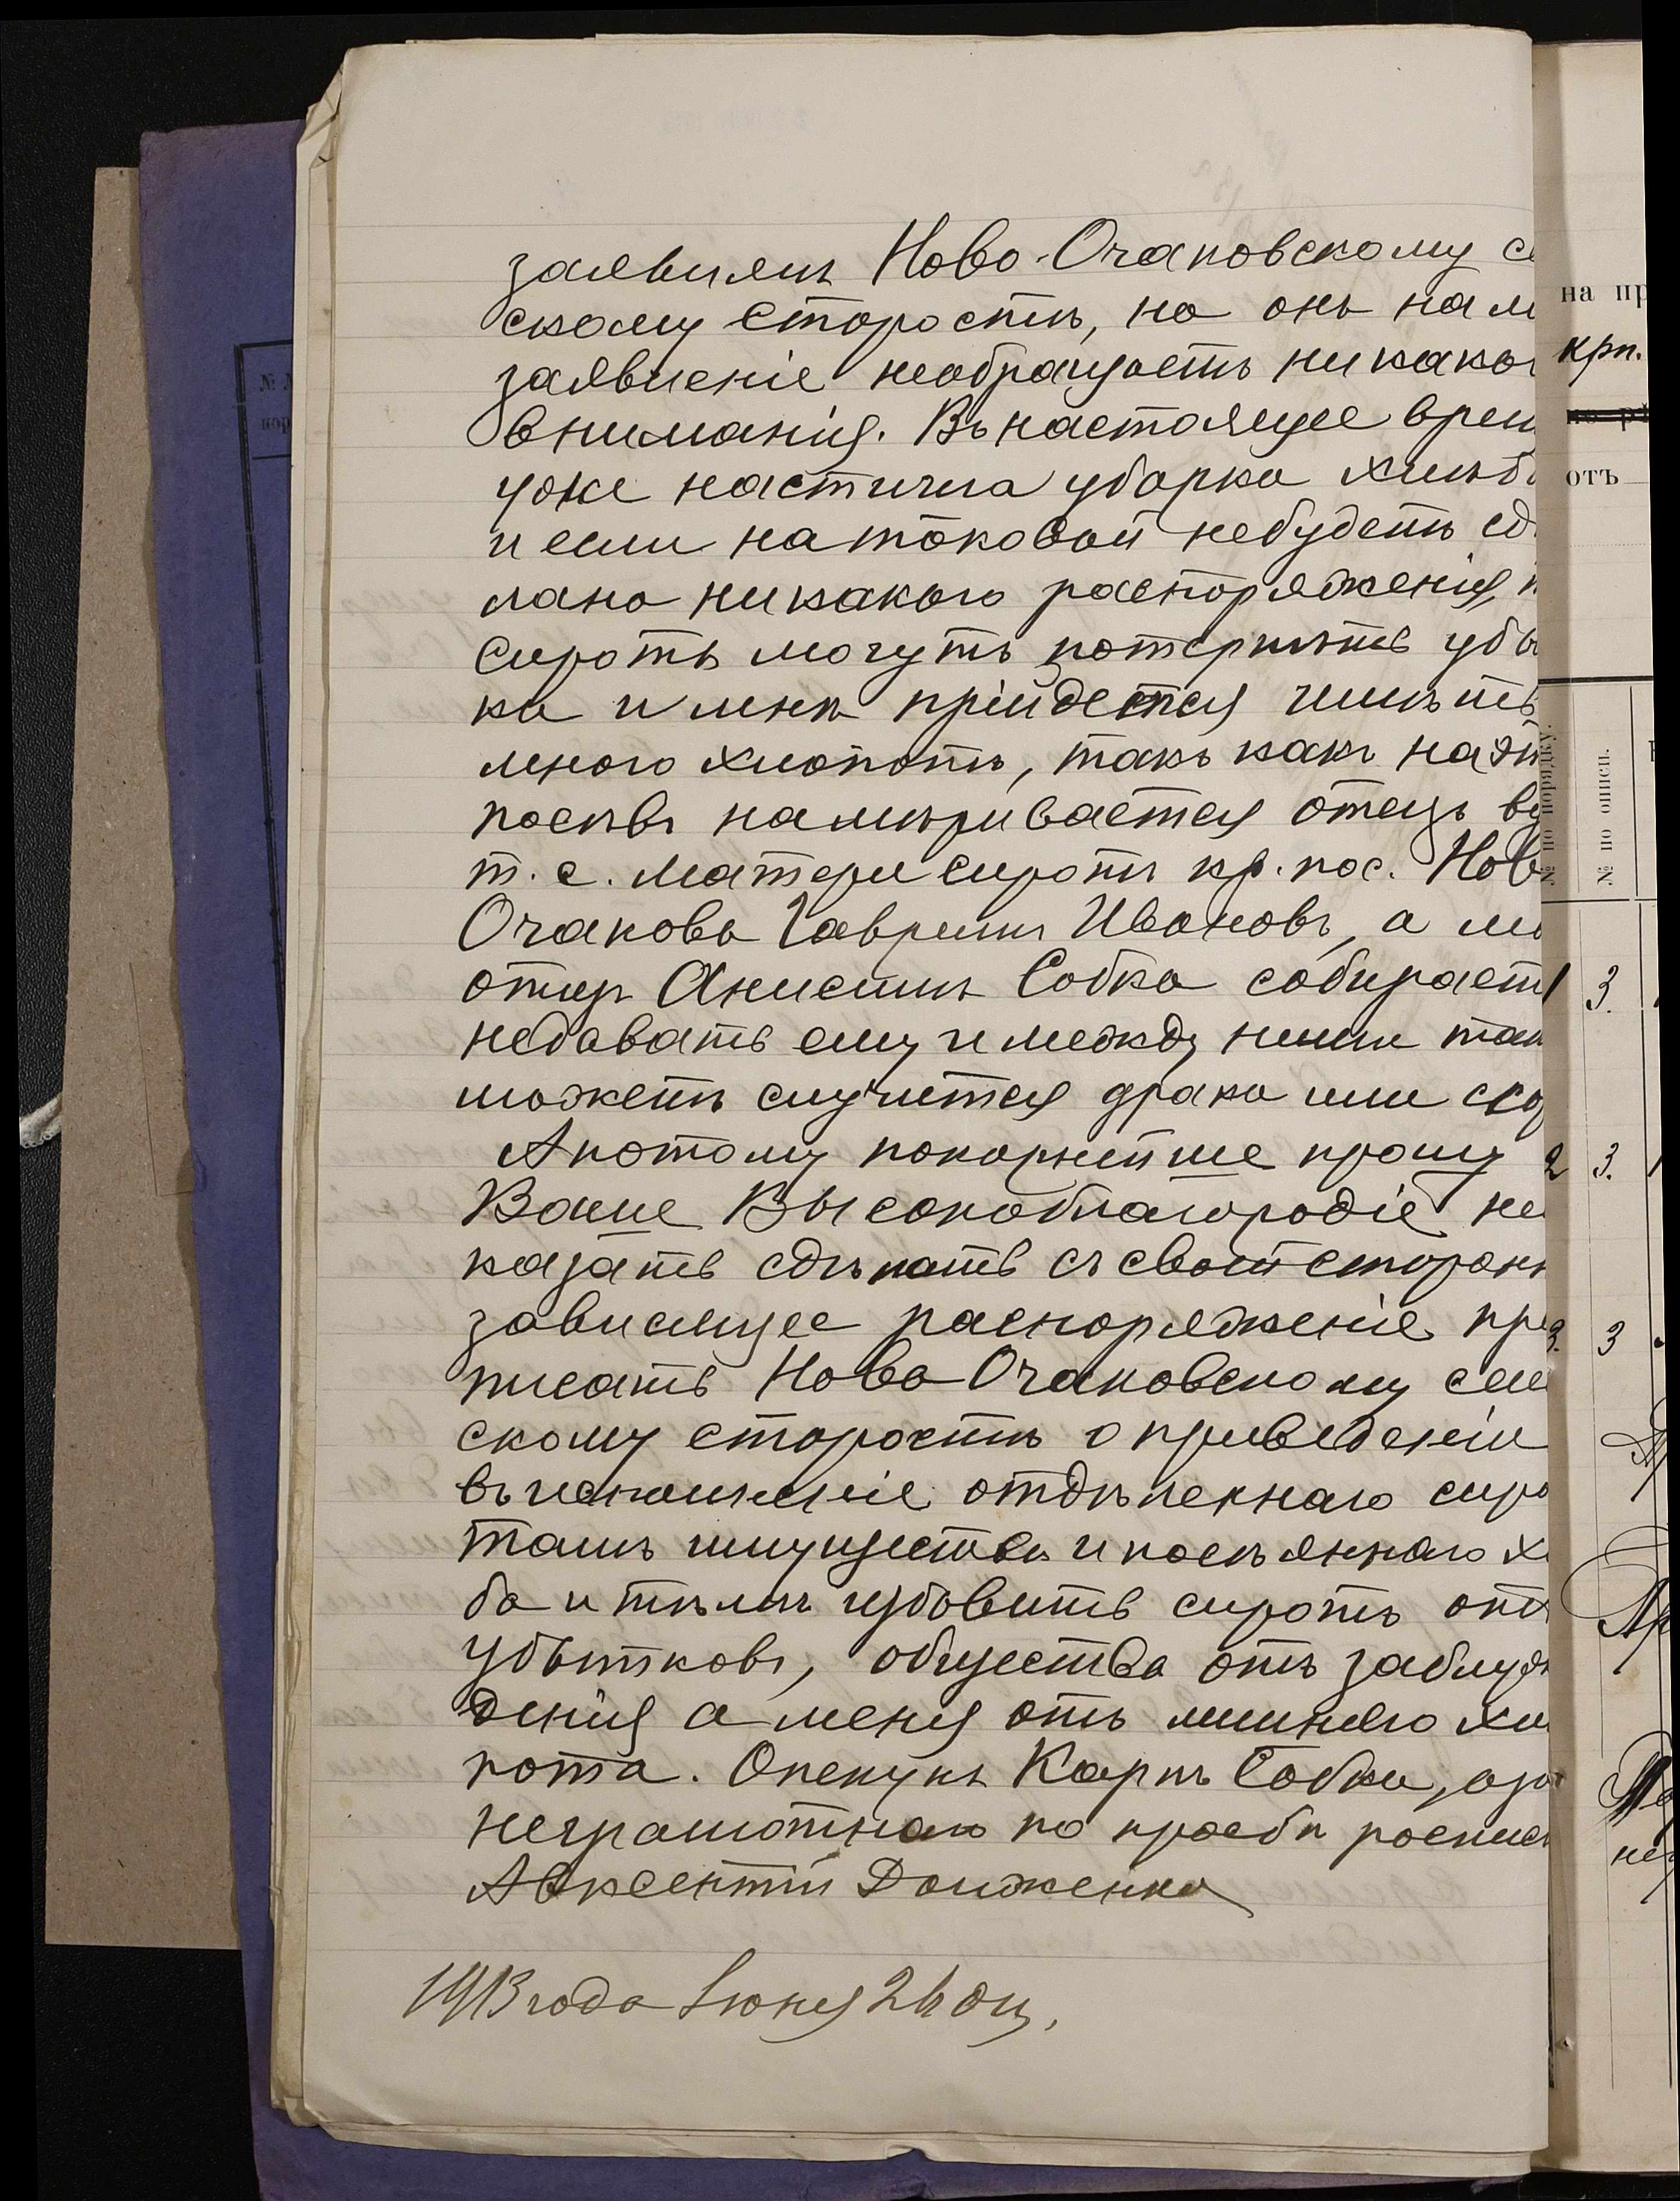 заявилъ Ново-Очаковскому се
скому Старостѣ, но онъ на м
заявленіе необращаетъ никако
вниманія. Въ настоящее врем
уже настигла уборка хлѣб
и если на таковой небудетъ сд
лано никакого распоряженія,
сироты могутъ потерпѣть убы
ка и мнѣ прійдется имѣть
много хлопотъ, такъ какъ на эт
посѣвъ намѣривается отецъ в
т. е. матери сиротъ кр. пос. Нов
Очакова Гаврилъ Ивановъ, а м
отецъ Анисимъ Собка собирает
недавать ему и между ними там
можетъ случится драка или ссо
А потому покорнѣйше прошу
Ваше Высокоблагородіе не
казать сдѣлать съ своей сторон
зависящее распоряженіе пре
писать Ново Очаковскому сел
скому старостѣ о приведеніи
въ исполненіе отдѣленнаго сиро
тамъ имущества и посѣяннаго х
ба и тѣмъ избавить сиротъ отъ
убытковъ, общества отъ заблуж
денія а меня отъ лишняго хл
пота. Опекунъ Карпъ Собка, а за
неграмотнаго по просьбѣ роспис
Авксентій Долженко
1913 года Іюня 26 дня,
на пр
крп.
отъ
№ по порядку.
№ по описи.
1 3.
2 3.
3. 3